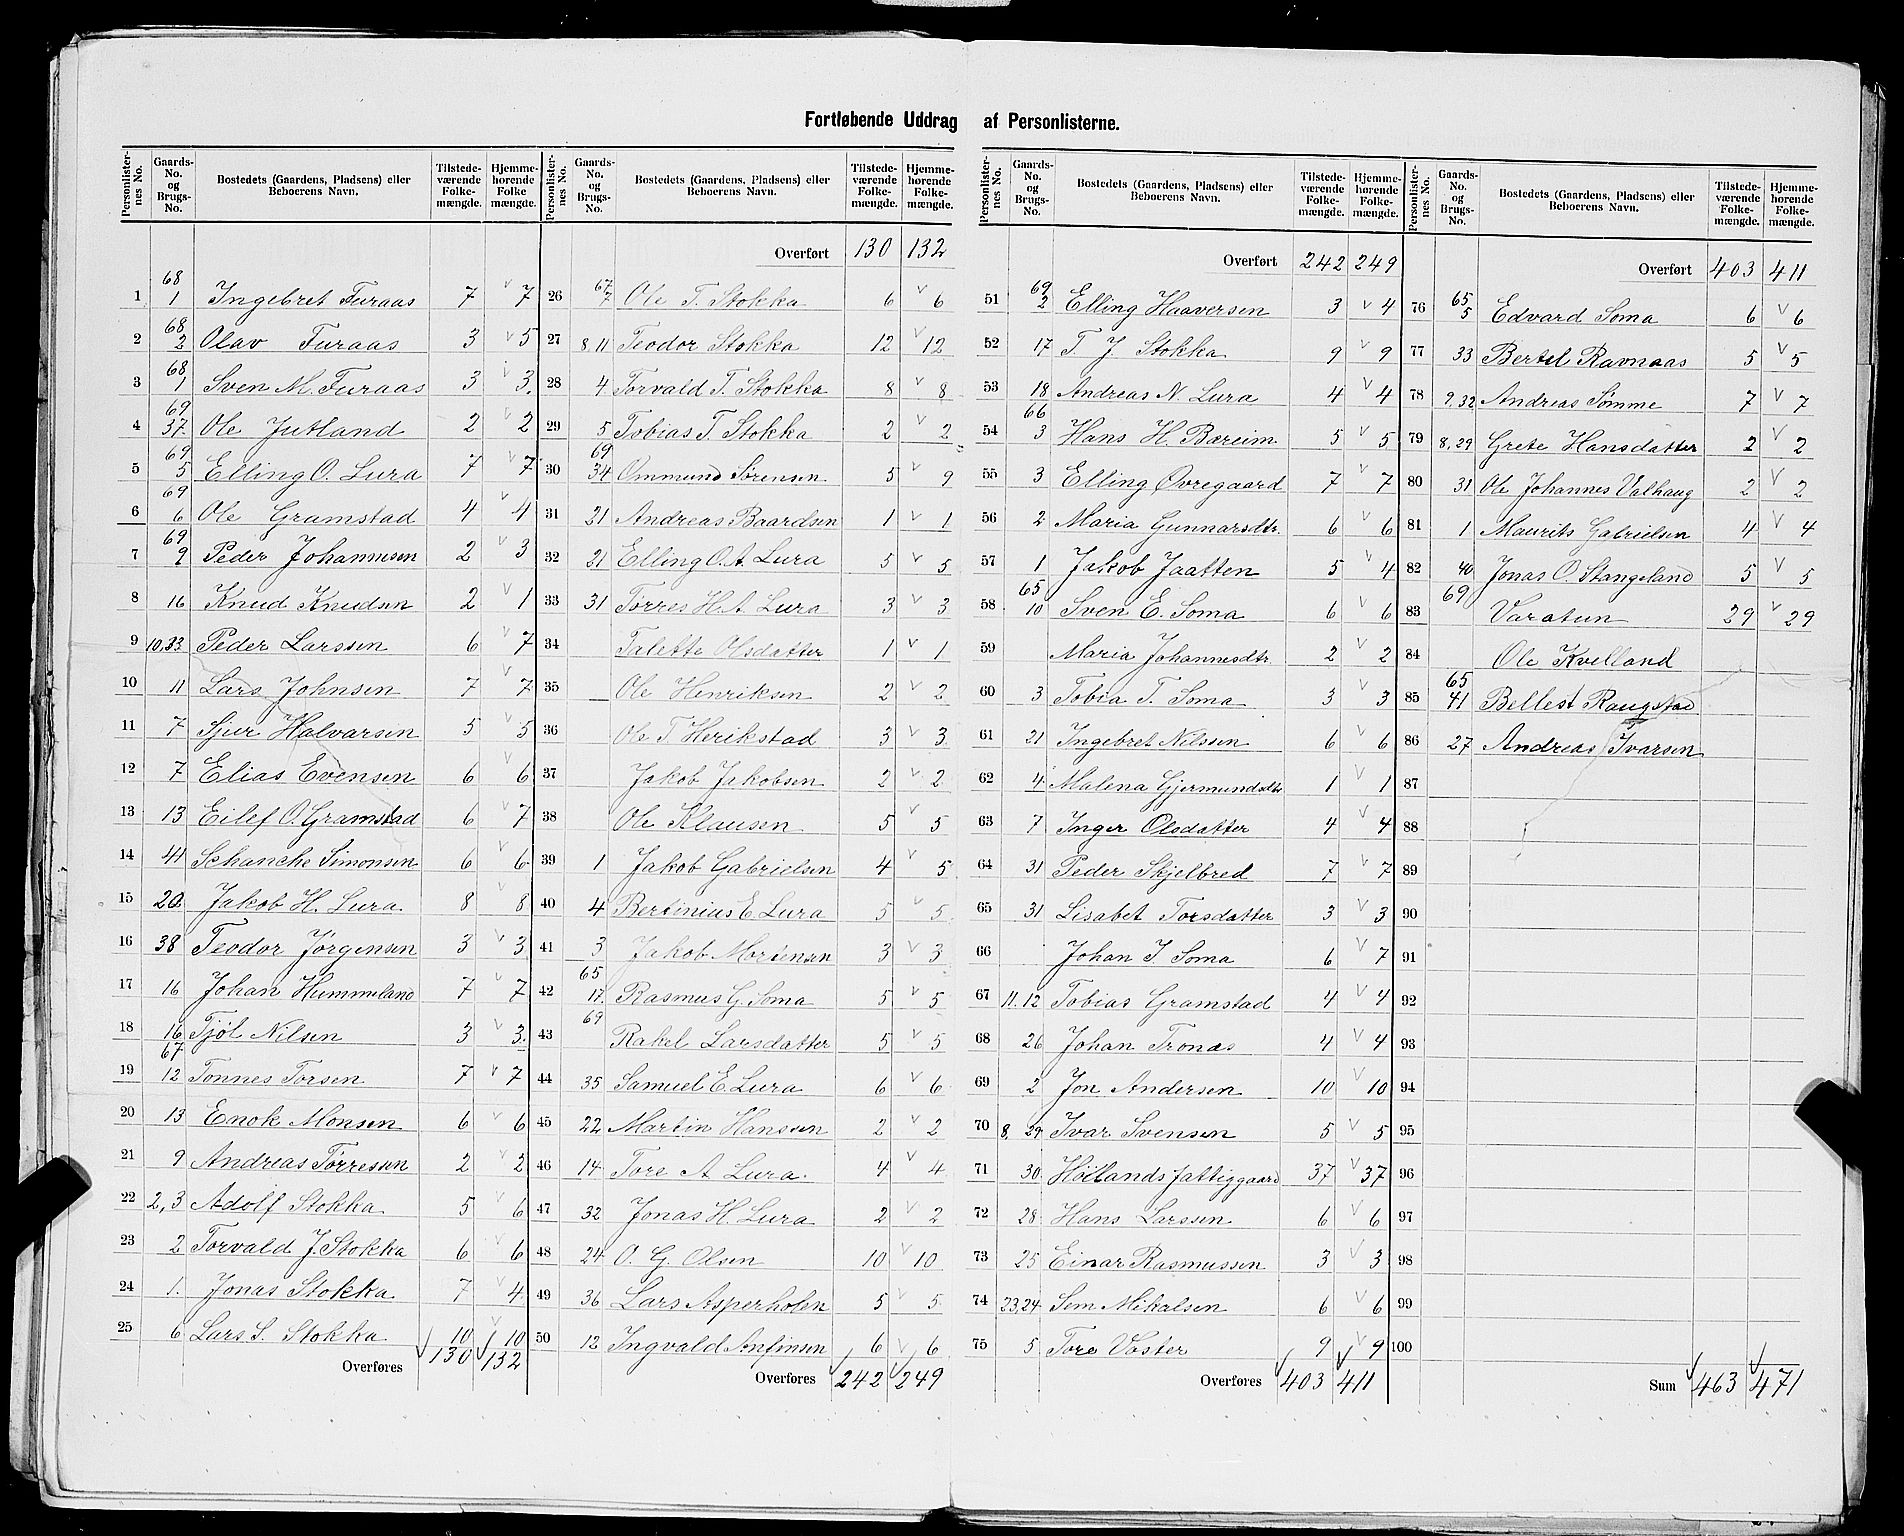 Fortløbende Uddrag af Personlisterne.
Personlisternes No. | Gaards-No. og Brugs-No. | Bostedets (Gaardens, Pladsens) eller Beboerens Navn. | Tilstedeværende Folkemængde. | Hjemmehørende Folkemængde.
1 68/1 Ingebret Furaas 7 v 7
2 68/2 Olav Furaas 3 v 5
3 68/1 Sven M. Furaas 3 v 3.
4 69/37 Ole Jutland 2 v 2
5 69/5 Elling O. Lura 7 v 7
6 69/6 Ole Gramstad 4 v 4
7 69/9 Peder Johannesen 2 v 3
8 16 Knud Knudsen 2 v 1
9 10,33 Peder Larssen 6 v 7
10 11 Lars Johnsen 7 v 7
11 7 Sjur Halvarsen 5 v 5
12 7 Elias Evensen 6 v 6
13 13 Eilef O. Gramstad 6 v 7
14 41 Schancke Simonsen 6 v 6
15 20 Jakob H. Lura 8 v 8
16 38 Teodor Jörgensen 3 v 3
17 16 Johan Hummeland 7 v 7
18 16 Tjöl Nilsen 3 v 3.
19 67/12 Tönnes Torsen 7 v 7
20 13 Enok Monsen 6 v 6
21 9 Andreas Törresen 2 v 2
22 2,3 Adolf Stokka 5 v 6
23 2 Torvald J. Stokka 6 v 6
24 1. Jonas Stokka 7 4
25 6 Lars S. Stokka 10 v 10
Overføres 130 132
Personlisternes No. | Gaards-No. og Brugs-No. | Bostedets (Gaardens, Pladsens) eller Beboerens Navn. | Tilstedeværende Folkemængde. | Hjemmehørende Folkemængde.
Overført 130 132
26 67/7 Ole T. Stokka 6 v 6
27 8,11 Teodor Stokka 12 v 12
28 4 Torvald T. Stokka 8 v 8
29 5 Tobias T. Stokka 2 v 2
30 69/34 Ommund Sörensen 5 v 9
31 21 Andreas Baardsen 1 v 1
32 21 Elling O. A. Lura 5 v 5
33 31 Törres H. A. Lura 3 v 3
34 Talette Olsdatter 1 v 1
35 Ole Henriksen 2 v 2
36 Ole T. Herikstad 3 v 3
37 Jakob Jakobsen 2 v 2
38 Ole Klausen 5 v 5
39 1 Jakob Gabrielsen 4 v 5
40 4 Bertinius E. Lura 5 v 5
41 3 Jakob Mortensen 3 v 3
42 65/17. Rasmus G. Soma 5 v 5
43 69 Rakel Larsdatter 5 v 5
44 35 Samuel E. Lura 6 v 6
45 22 Martin Hanssen 2 v 2
46 14 Tore A Lura. 4 v 4
47 32 Jonas H. Lura 2 v 2
48 24 O. G. Olsen 10 v 10
49 36 Lars Asperholen 5 v 5
50 12 Ingvald Anfinsen 6 v 6
Overføres 242 249
Personlisternes No. | Gaards-No. og Brugs-No. | Bostedets (Gaardens, Pladsens) eller Beboerens Navn. | Tilstedeværende Folkemængde. | Hjemmehørende Folkemængde.
Overført 242 249
51 69/2 Elling Haaversen 3 v 4
52 17 T. J Stokka 9 v 9
53 18 Andreas N. Lura 4 v 4
54 66/3 Hans H. Bæreim 5 v 5
55 3 Elling Øvregaard 7 v 7
56 2 Maria Gunnarsdtr. 6 v 6
57 1 Jakob Jaatten 5 v 4
58 65/10 Sven E. Soma 6 v 6
59 Maria Johannesdtr. 2 v 2
60 3 Tobia T. Soma 3 v 3
61 21 Ingebret Nilssen 6 v 6
62 4 Malena Gjermundsdtr 1 v 1
63 7 Inger Olsdatter 4 v 4
64 31 Peder Skjelbred 7 v 7
65 31 Lisabet Torsdatter 3 v 3
66 Johan J. Soma 6 v 7
67 11.12 Tobias Gramstad 4 v 4
68 26 Johan Tronäs 4 v 4
69 2 Jon Andersen 10 v 10
70 8, 29 Ivar Svensen 5 v 5
71 30. Høllands fattiggaard 37 v 37
72 28 Hans Larssen 6 v 6
73 25 Einar Rasmussen 3 v 3
74 23,24 Sem Mikalsen 6 v 6
75 5 Tore Vaster 9 v 9
Overføres 403 411
Personlisternes No. | Gaards-No. og Brugs-No. | Bostedets (Gaardens, Pladsens) eller Beboerens Navn. | Tilstedeværende Folkemængde. | Hjemmehørende Folkemængde.
Overført 403 411
76 65/5 Edvard Soma 6 v 6
77 33 Bertel Ravnaas 5 v 5
78 9,32 Andreas Sømme 7 v 7
79 8,29 Grete Hansdatter 2 v 2
80 31 Ole Johannes Valhaug 2 v 2
81 1 Maurits Gabrielsen 4 v 4
82 40 Jonas O. Stangeland 5 v 5
83 69 Varatun 29 v 29
84 Ole Kvelland
85 65/41 Bellest Raugstad
86 27 Andreas Ivarsen
87
88
89
90
91
92
93
94
95
96
97
98
99
100
Sum 463 471